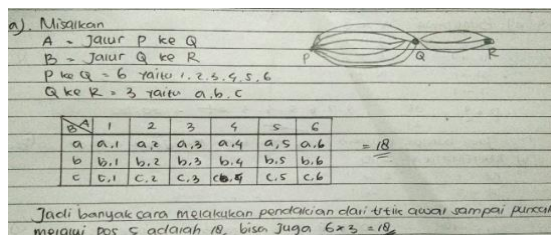 a). Misalkan
A = Jalur P ke Q
B = Jalur Q ke R
P ke Q = 6 yaitu 1, 2, 3, 4, 5, 6
Q ke R = 3 yaitu a, b, c
P Q R
B A 1 2 3 4 5 6
a a,1 a,2 a,3 a,4 a,5 a,6 = 18
b b,1 b,2 b,3 b,4 b,5 b,6
c c,1 c,2 c,3 c,4 c,5 c,6
Jadi banyak cara melakukan pendakian dari titik awal sampai puncak
melalui pos adalah 18, bisa juga 6x3 = 18